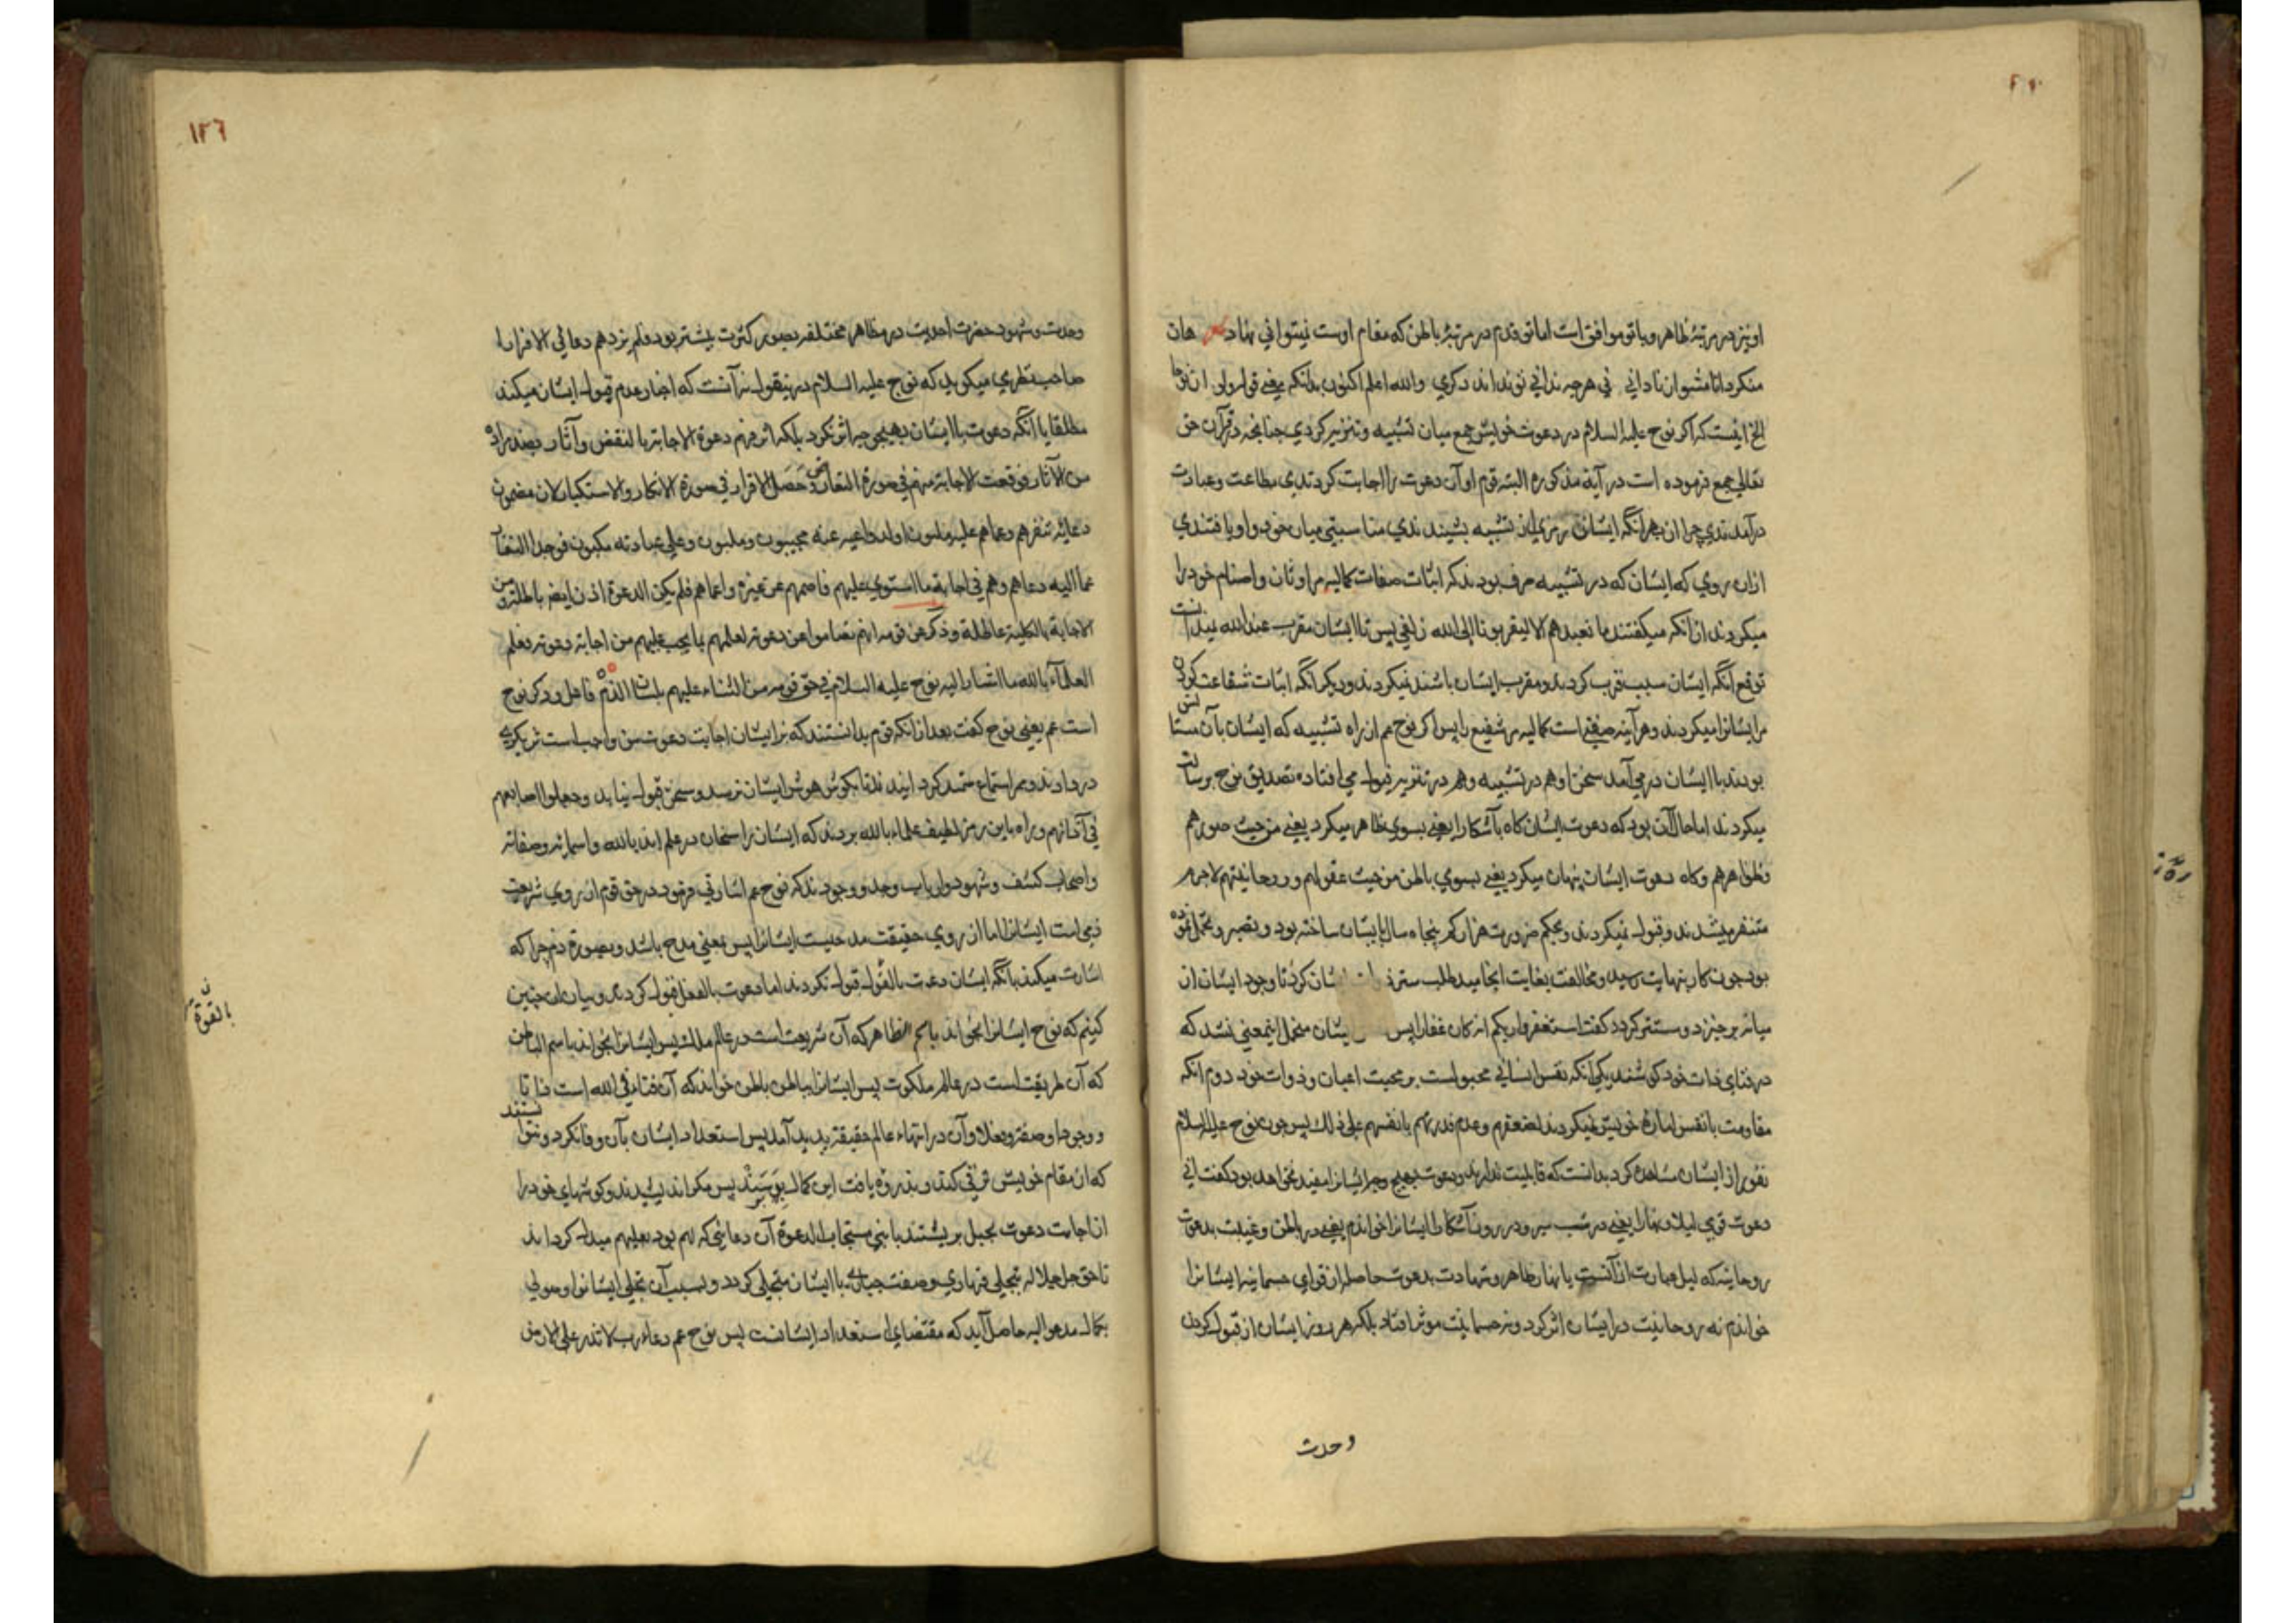 او نیز در مرتبۀ ظاهر و با تو موافق است اما تو قدم در مرتبۀ باطن که مقام اوست نیتوانی نهاد شعر هان
منکر دانا مشو از نادانی نی هرچه ندانی تو نداند دکری والله اعلم اکنون بدانکه یعنی قوله ولو ان نوحا
الخ اینست که اکر نوح علیه السلام در دعوت خویش جمع میان تشبیه و تنزیه کردی چنانچه در قرآن حق
تعالی جمع فرموده است در آیه مذکوره البته قوم او آن دعوت را اجابت کردندی مطاعت و عبادت
درآمدندی چرا از بهر آنکه ایشان از تشبیه بشنیدندی مناسبتی میان خود و او یافتندی
ازان روی که ایشان که در تشبیه صرف بودند که اثبات صفات کمالیه مر اوثان و اصنام خود را
میکردند از آنکه میکفتند ما نعبدهم الا لیقربونا الی الله زلفی پس تا ایشان مقرب عند الله نیدانست
توقع آنکه ایشان سبب قرب کردند و مقرب ایشان باشند نیکردند و دیکر آنکه اثبات شفاعت کردن
مر ایشانرا میکردند و هر آینه صفتی است کمالیه مر شفیع را پس اکر نوح عم از راه تشبیه که ایشان بآن
بودند با ایشان در می آمد سخن او هم در تشبیه و هم در تنزیه قبول می افتاد تصدیق نوح برسالت
میکردند اما حال آن بود که دعوت ایشان کاه بآشکارا یعنی بسوی ظاهر میکرد یعنی من حیث صورهم
و ظواهرهم و کاه دعوت ایشان پنهان میکرد یعنی بسوی باطن من حیث عقولهم و روحانیتهم لاجرم
متنفر میشدند و قبول نمیکردند و بحکم ضرورت هزار کم پنجاه سال بایشان ساخته بود و تصبر و تحمل نموده
بود چون کار بنهایت رسید و مخالفت بغایت انجامید طلب ستر ایشان کرد تا وجود ایشان از
میانه برخیزد و مستتر کردد کفت استغفروا ربکم انه کان غفارا پس ایشان متحمل اینمعنی نشد که
در فنای ذات خود کوشند یکی آنکه نفس انسانی مجبول است بر محبت اعیان و ذوات خود دوم آنکه
مقاومت با نفس اماره خویش نمیکردند لضعفهم و عدم قدرتهم بانفسهم علی ذلک پس چون نوح علیه السلام
نفور از ایشان مشاهده کرد بدانست که قابلیت ندارند و دعوت بهیچ وجه ایشانرا مفید نخواهد بود کفت انی
دعوت قومی لیلا و نهارا یعنی در شب سر و در روز آشکارا ایشانرا خواندم یعنی در باطن و غیبت بدعوت
روحانیه که لیل عبارت از آنست یا بنهار ظاهر و شهادت بدعوت حاصله از قوای جسمانیه ایشانرا
خواندم نه روحانیت در ایشان اثر کرد و نه جسمانیت موثر افتاد بلکه هر روز ایشان از قبول کردن
وحدت
۱۲٦
وحدت و شهود حضرت احدیت در مظاهر مختلفه بصور کثرت بیشتر بود فلم یزدهم دعائی الا فرارا
صاحب نظری میکوید که نوح علیه السلام درینقول نه آنست که اخبار عدم قبول ایشان میکند
مطلقا یا آنکه دعوت با ایشان بهیچ وجه اثر نکرد بلکه اثر فیهم دعوة الاجابة بالنقض وآثار
من الآثار فوقعت الاجابة منهم فی صورة التعارض حصل الاقرار فی صورة الانکار والاستکبار لان مضمون
دعائه تنفرهم دعاهم علیه مجیبون وملبون وعلی عبادته مکبون
عما الیه دعاهم وهم فی اجابة ما استوی علیهم فاصمهم عن غیره واعماهم فلم یکن الدعوة اذن ایضا باطلة ومن
الاجابة بالکلیة عاطلة وذکر عن قومه انهم تصامموا عن دعوته لعلمهم بما یجب علیهم من اجابة دعوته فعلم
العلماء بالله ما اشار الیه نوح علیه السلام فی حق قومه من الثناء علیهم بلسان الذم فاعل و ذکر نوح
است عم یعنی نوح کفت بعد از آنکه قوم بدانستند که بر ایشان اجابت دعوت من واجب است
در دادند و مر استماع سخن قبول نیاید وجعلوا اصابعهم
فی آذانهم و راه باین رمز لطیف علماء بالله بردند که ایشان راسخان در علم اند بالله و اسمائه و صفاته
و اصحاب کشف و شهود و ارباب وجد و وجودند که نوح عم اشارتی فرمود در حق قوم از روی شریعت
ذمی است ایشانرا اما از روی حقیقت مدحیست ایشانرا پس بمعنی مدح باشد و بصورة ذم چرا که
اشارت میکند بآنکه ایشان دعوت بالقول قبول نکردند اما دعوت بالفعل قبول کردند و بیان این چنین
کنیم که نوح ایشانرا بخواند باسم الظاهر که آن شریعت است در عالم ملک پس ایشانرا بخواند باسم الباطن
که آن طریقت است در عالم ملکوت پس ایشانرا بباطن باطن خواند که آن فناء فی الله است ذاتا
و وجودا و صفة و فعلا و آن در انتهاء عالم حقیقة پدید آمد پس استعداد ایشان بآن وفا نکرد و نتوانستند
که از مقام خویش ترقی کنند و بذروۀ یافت این کمال پیوندند پس مکر اندیشیدند و کوشهای خود را
از اجابت دعوت بحیل بربستند تا نبی مستجاب الدعوة آن دعائی که لهم بود بعلیهم مبدل کرداند
تا حق جل جلاله بتجلی قهاری و صفت جباری با ایشان متجلی کردد و بسبب آن تجلی ایشانرا وصولی
بکمال مدعو الیه حاصل آید که مقتضای استعداد ایشانست پس نوح عم دعاء رب لا تذر علی الارض
بالقوة